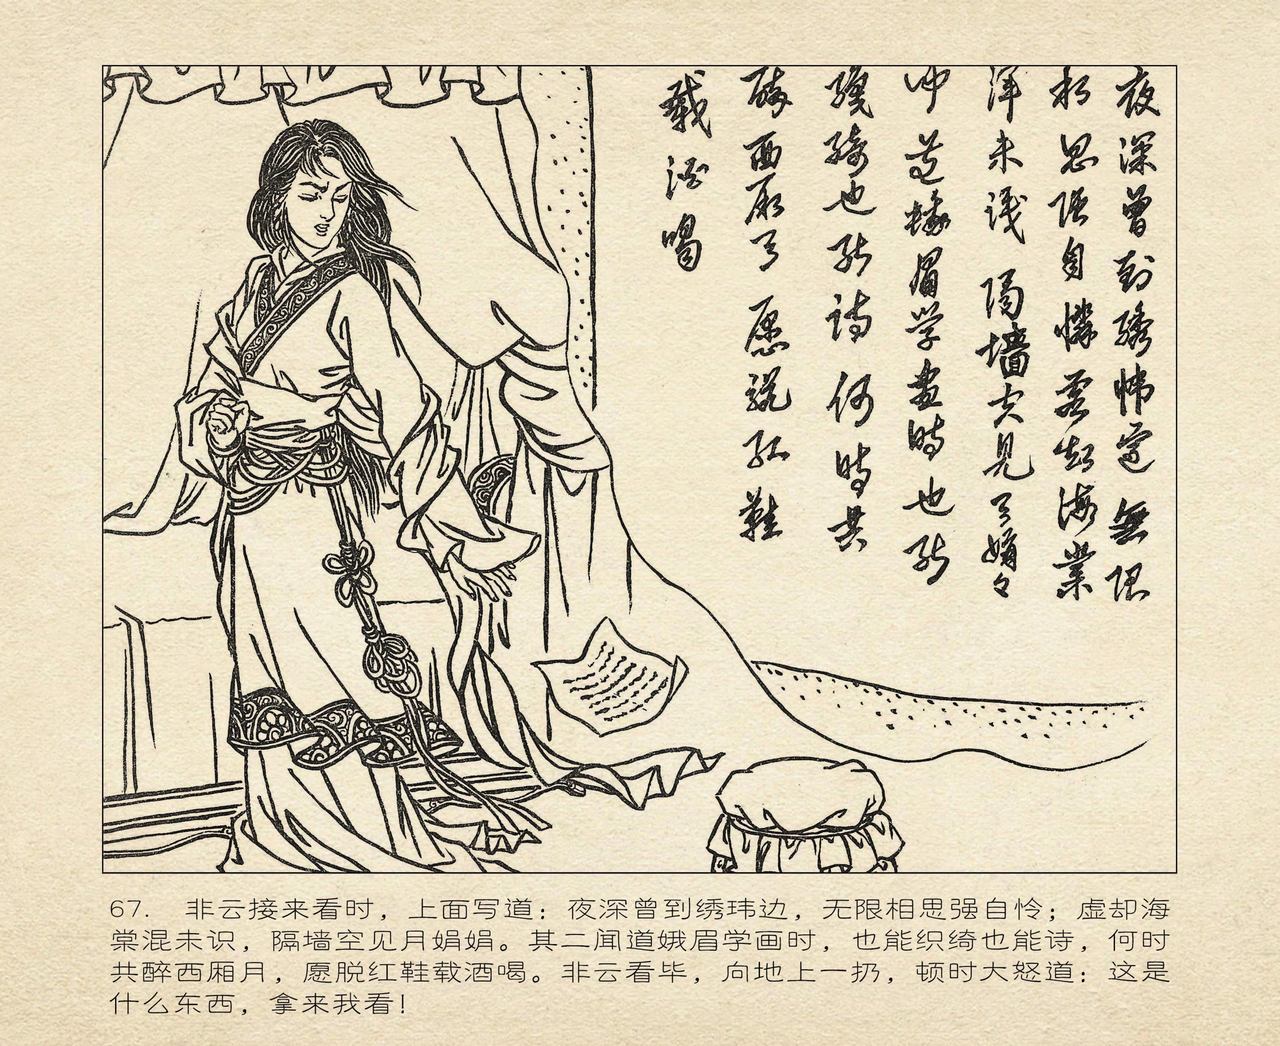 夜深曾到绣帏边無限
相思强自憐虚却海棠
渾未識 隔墙空见月娟々
闻道蛾眉学画时也能
织绮也能诗何時共
醉西厢月愿脱红鞋
载酒喝
67. 非云接来看时，上面写道：夜深曾到绣玮边，无限相思强自怜；虚却海
棠混未识，隔墙空见月娟娟。其二闻道娥眉学画时，也能织绮也能诗，何时
共醉西厢月，愿脱红鞋载酒喝。非云看毕，向地上一扔，顿时大怒道：这是
什么东西，拿来我看！